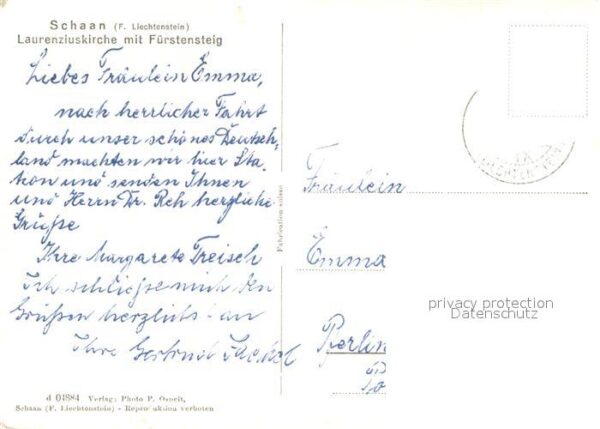 Schaan (F. Liechtenstein)
Laurenziuskirche mit Fürstensteig
Liebes Fräulein Emma,
nach herrlicher Fahrt
durch unser schönes Deutsch-
land machten wir hier Sta-
tion und senden Ihnen
und Herrn Dr. Reh herzliche
Grüße
Ihre Margarete Treisch
Ich schließe mich den
Grüßen herzlichst an
Ihre Gertrud
Fabrication suisse
Fräulein
Emma
Berlin
privacy protection
Datenschutz
d 04884 Verlag: Photo P. Ospelt,
Schaan (F. Liechtenstein) - Reproduktion verboten